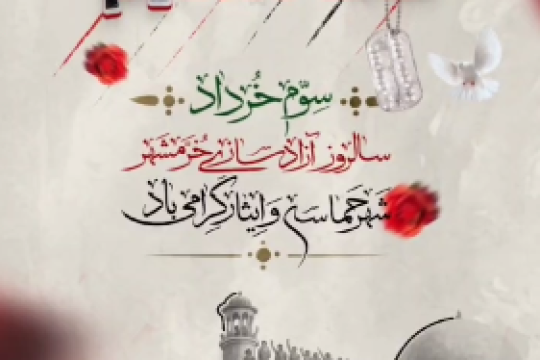 سوّم خُرداد
سالروز آزادسازی خُرمشهر
شهر حماسه و ایثار گرامی باد